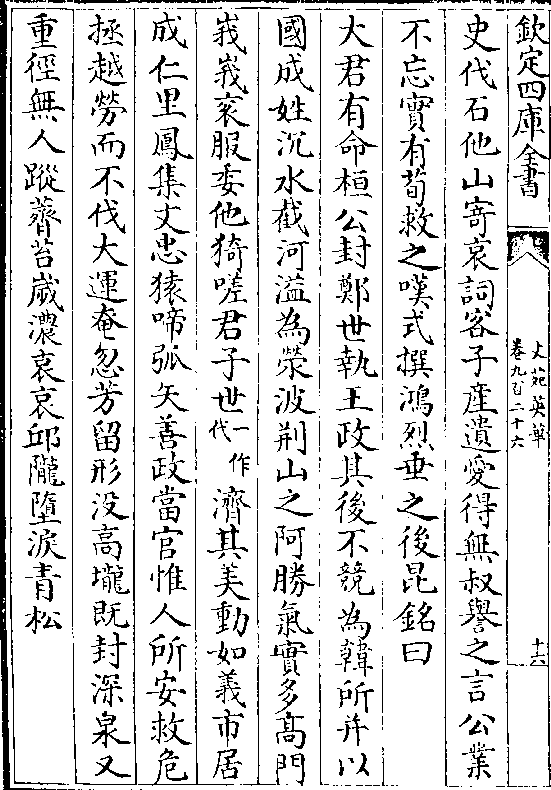 欽定四庫全書
文苑英華
卷九百二十六
十六
史代石他山寄哀詞客子產遺愛得無叔譽之言公業
不忘實有荀攸之嘆式撰鴻烈垂之後昆銘曰
大君有命桓公封鄭世執王政其後不競為韓所并以
國成姓沉水截河溢為滎波荆山之阿勝氣實多高門
峩峩衮服委他猗嗟君子世一作代濟其美動如義市居
成仁里鳳集丈忠猿啼弧矢善政當官惟人所安救危
拯越勞而不伐大運奄忽芳留形没高壠既封深泉又
重徑無人蹤薺苔歲濃哀哀邱隴墮淚青松